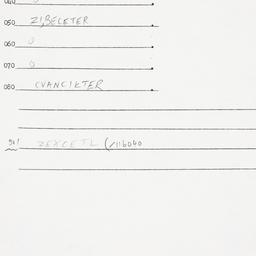 040 0
050 ZIBELETER
060 0
070 0
080 CVANCIKTER
90! ZEXCETL (/116040